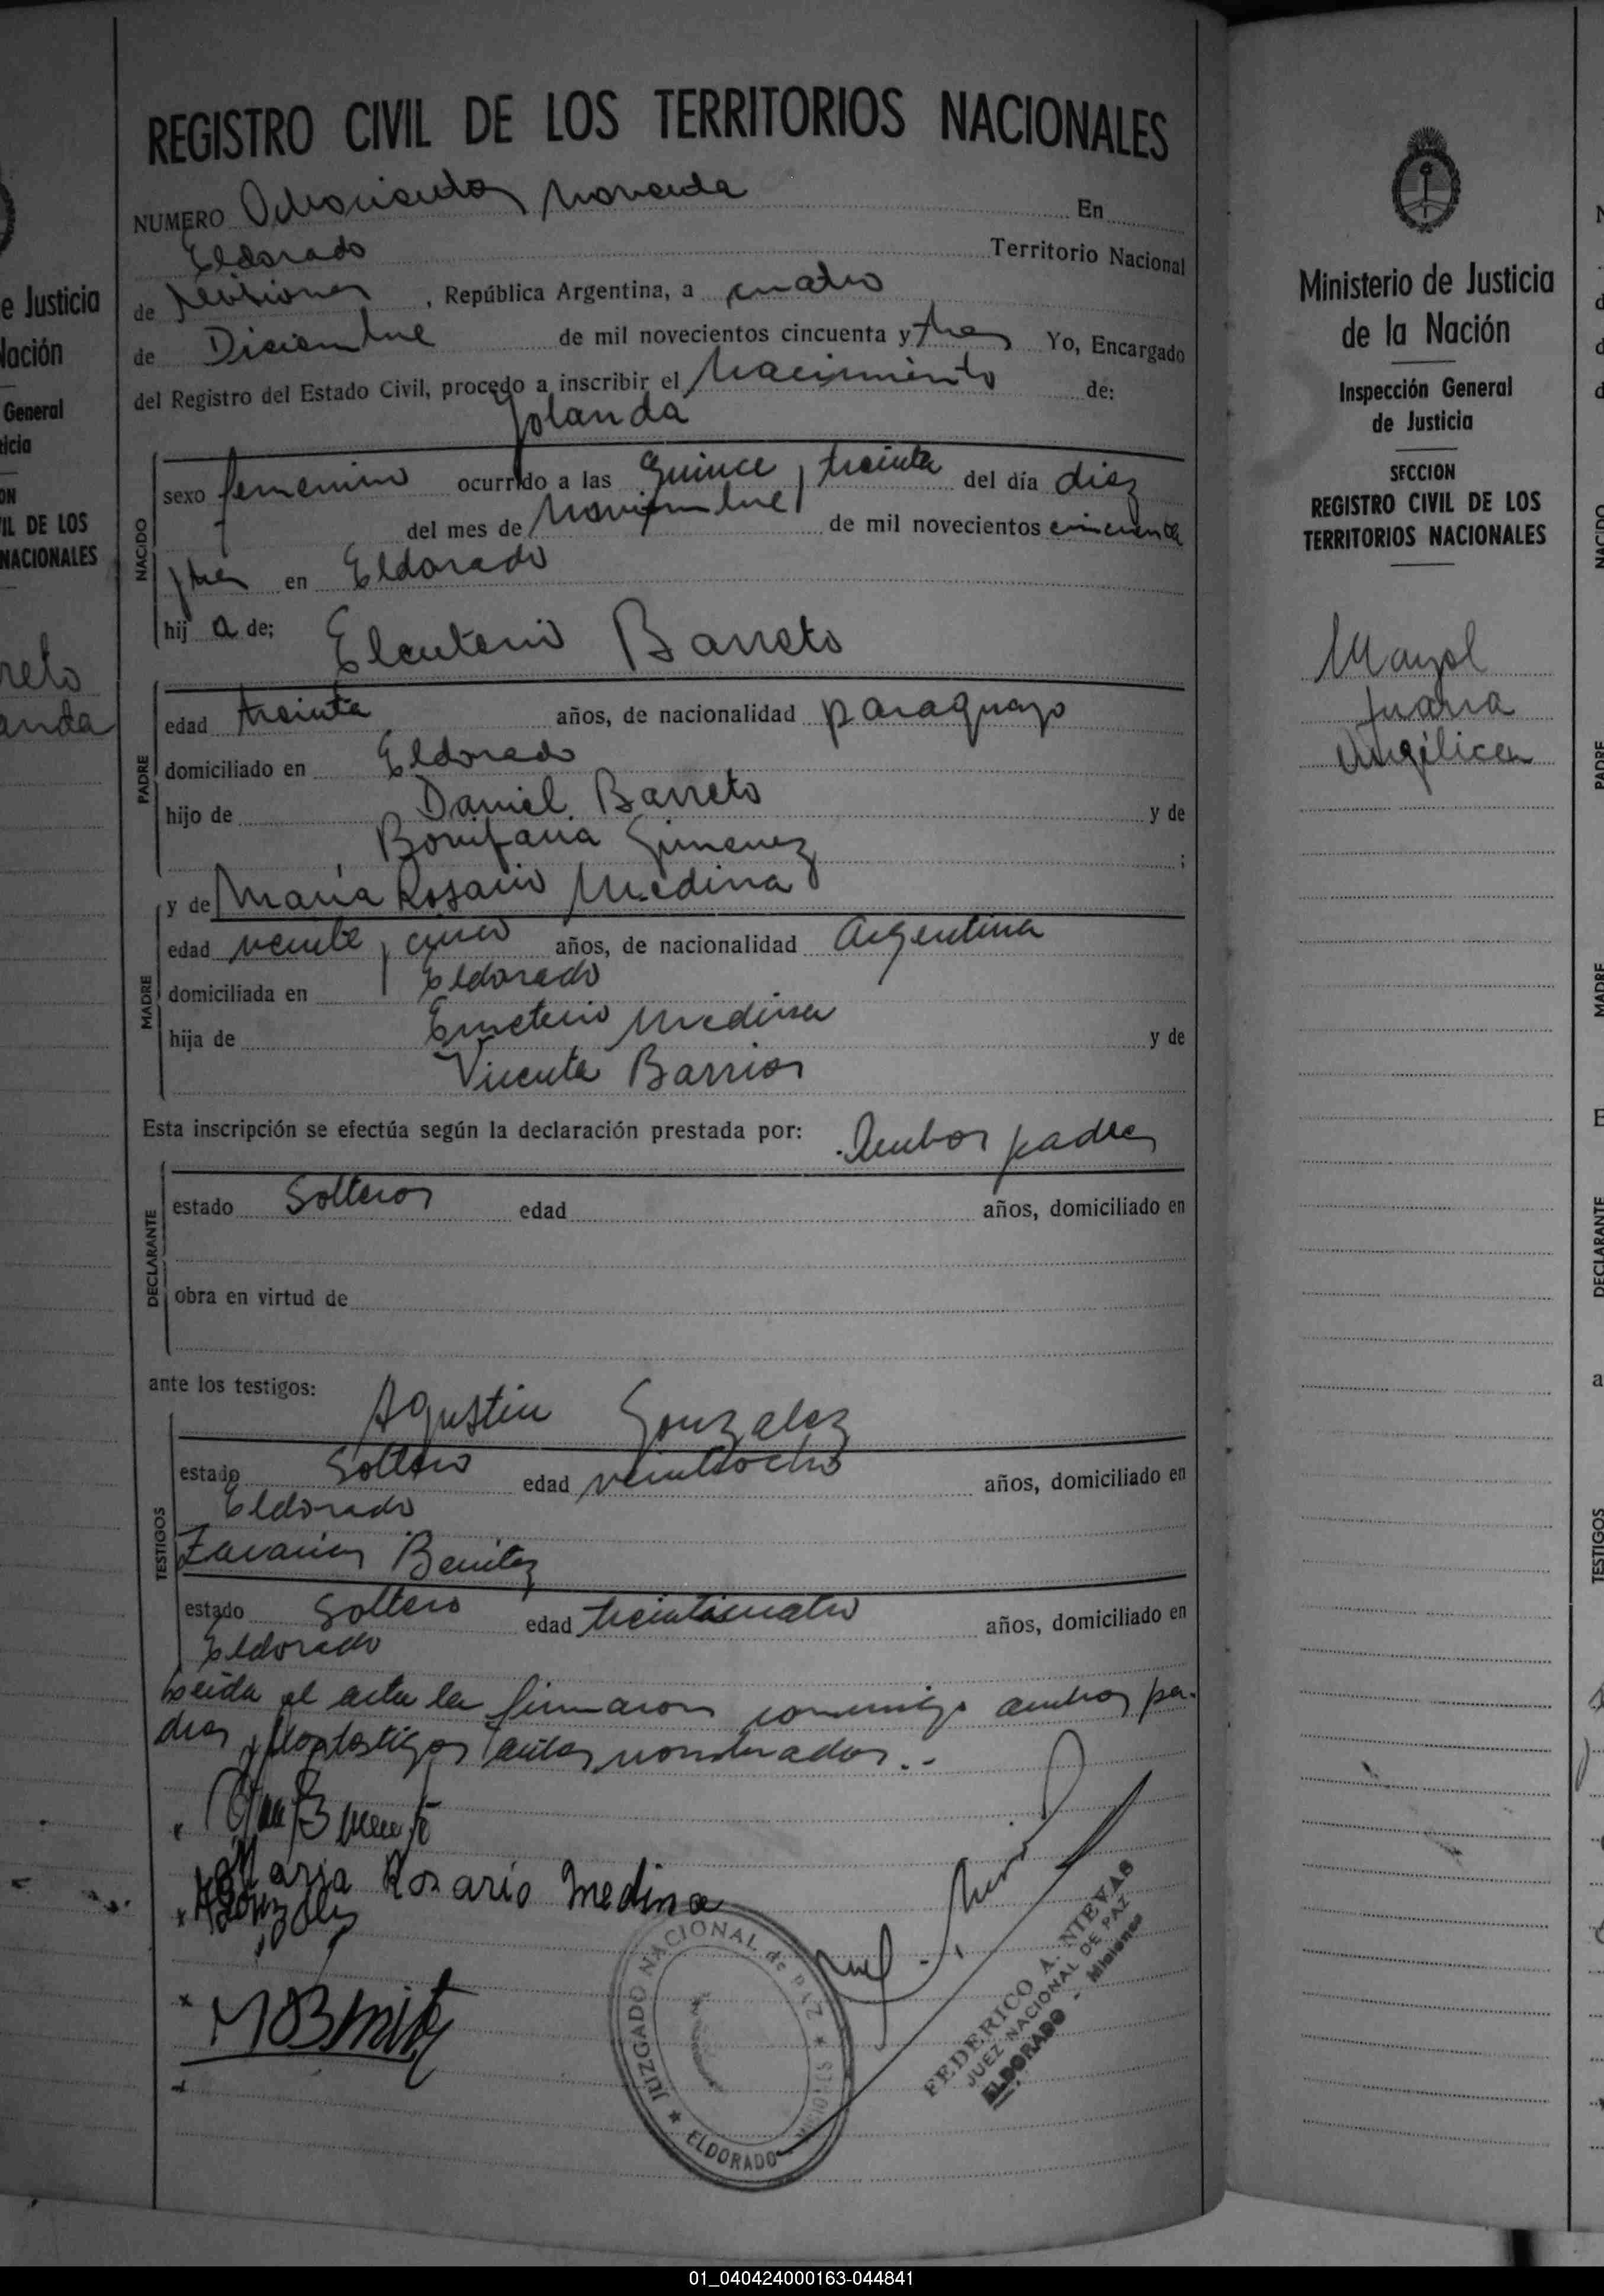 REGISTRO CIVIL DE LOS TERRITORIOS NACIONALES
NUMERO Ochocientos noventa En
Eldorado Territorio Nacional
de Misiones, República Argentina, a cuatro
de Diciembre de mil novecientos cincuenta y tres Yo, Encargado
del Registro del Estado Civil, procedo a inscribir el Nacimiento de:
Yolanda
sexo femenino ocurrido a las quince y treinta del día diez
del mes de Noviembre de mil novecientos cincuenta
y tres en Eldorado
NACIDO
hij a de; Eleuterio Barreto
edad treinta años, de nacionalidad paraguayo
domiciliado en Eldorado
PADRE
hijo de Daniel Barreto y de
Bonifacia Gimenez ;
y de Maria Rosario Medina
edad veinte y cinco años, de nacionalidad Argentina
domiciliada en Eldorado
MADRE
hija de Emeterio Medina y de
Vicenta Barrios
Esta inscripción se efectúa según la declaración prestada por: Ambos padres
estado Solteros edad años, domiciliado en
DECLARANTE
obra en virtud de
ante los testigos: Agustin Gonzalez
estado Soltero edad veintiocho años, domiciliado en
Eldorado
TESTIGOS
Benitez
estado Soltero edad treinticuatro años, domiciliado en
Eldorado
Leida el acta la firmaron conmigo ambos pa-
dres y los testigos antes nombrados.-
Maria Rosario Medina
AGonzalez
JUZGADO NACIONAL de PAZ
ELDORADO
MISIONES
FEDERICO A. NIEVAS
JUEZ NACIONAL DE PAZ
ELDORADO - Misiones
e Justicia
Nación
General
ticia
ON
IL DE LOS
NACIONALES
reto
anda
Ministerio de Justicia
de la Nación
Inspección General
de Justicia
SECCION
REGISTRO CIVIL DE LOS
TERRITORIOS NACIONALES
Juana
Angélica
NACIDO
PADRE
MADRE
DECLARANTE
TESTIGOS
01_040424000163-044841